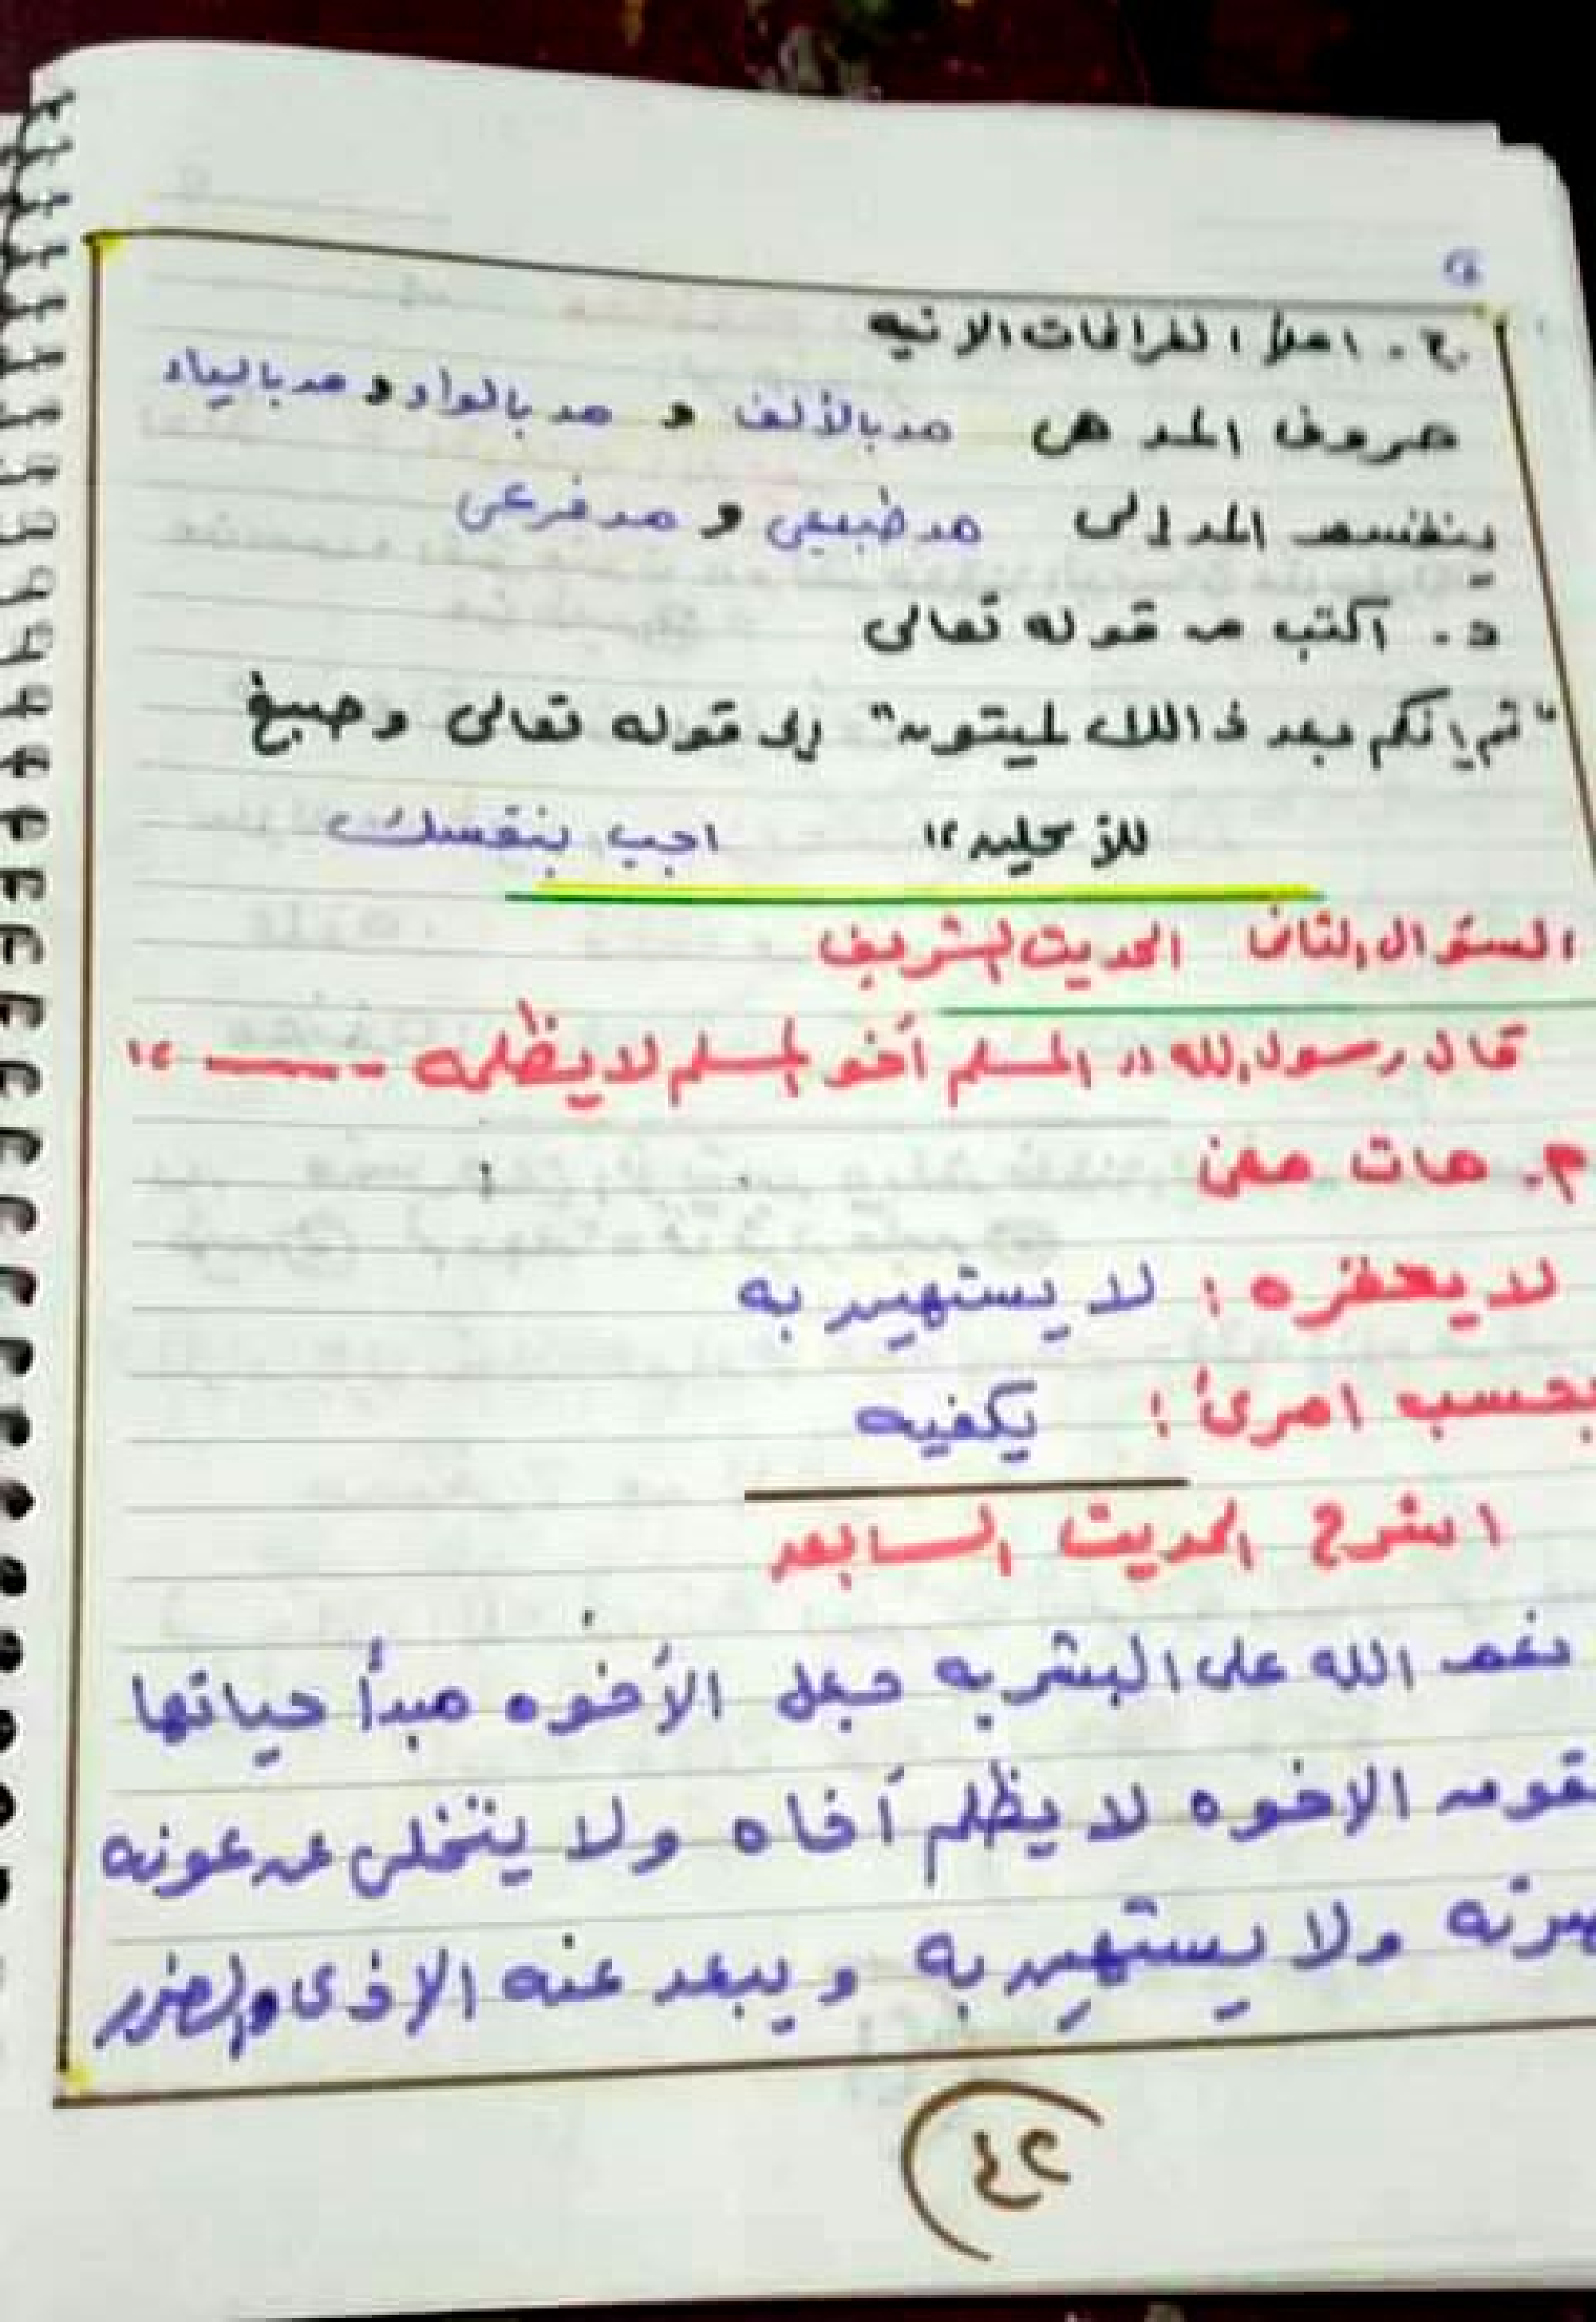 ج. املأ الفراغات الاتيه
حروف المد هي مد بالألف و مد بالواو و مد بالياء
ينقسم المد إلى مد طبيعي و مد فرعي
د. أكتب من قوله تعالى
"ثم إنكم بعد ذالك لميتون" إلى قوله تعالى وصبغ
للأكلين" اجب بنفسك
السؤال الثاني الحديث الشريف
قال رسول الله " المسلم أخو المسلم لا يظلمه ـــــ "
م. هات معنى
لا يحقره : لا يستهين به
بحسب امرئ : يكفيه
اشرح الحديث السابق
نعم الله على البشريه جعل الأخوه مبدأ حياتها
الاخوه لا يظلم أخاه ولا يتخلى عن عونه
ولا يستهين به و يبعد عنه الاذى والضرر
٢٤